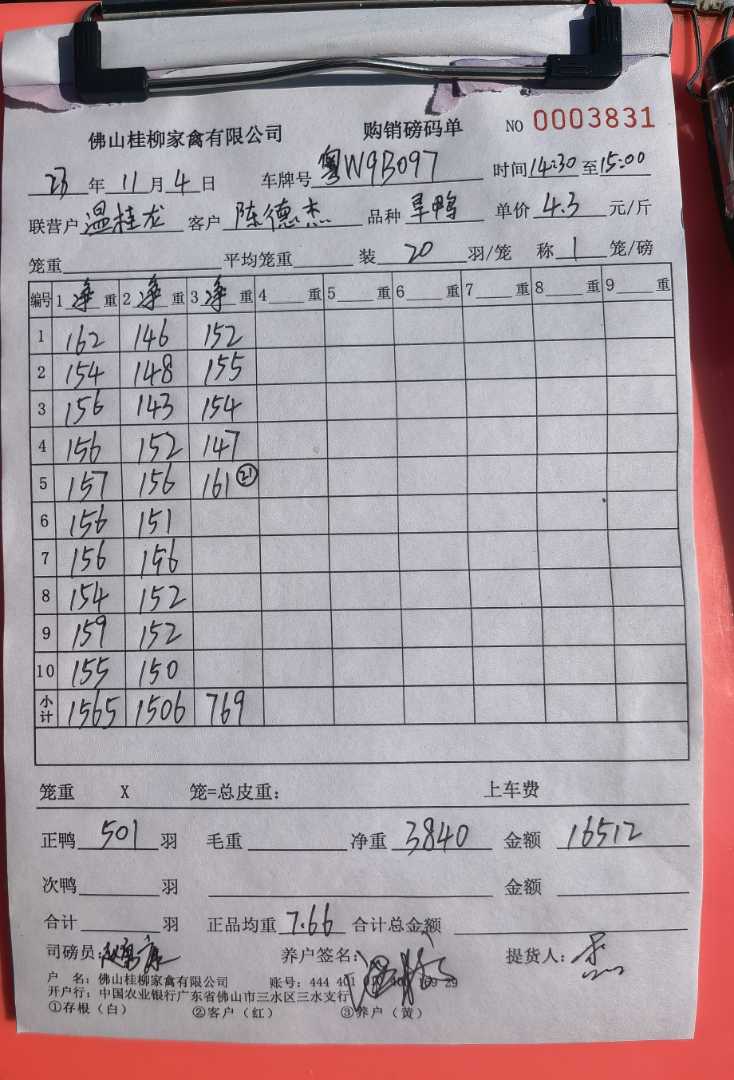 佛山桂柳家禽有限公司 购销磅码单 NO 0003831
23 年 11 月 4 日 车牌号 粤W9B097 时间 14:30 至 15:00
联营户 温桂龙 客户 陈德杰 品种 旱鸭 单价 4.3 元/斤
笼重 平均笼重 装 20 羽/笼 称 1 笼/磅
编号 1 净 重 2 净 重 3 净 重 4 重 5 重 6 重 7 重 8 重 9 重
1 162 146 152
2 154 148 155
3 156 143 154
4 156 152 147
5 157 156 161 21
6 156 151
7 156 156
8 154 152
9 159 152
10 155 150
小计 1565 1506 769
笼重 X 笼=总皮重: 上车费
正鸭 501 羽 毛重 净重 3840 金额 16512
次鸭 羽 金额
合计 羽 正品均重 7.66 合计总金额
司磅员: 养户签名: 提货人: 杰
户 名: 佛山桂柳家禽有限公司 账号: 444 401 29
开户行: 中国农业银行广东省佛山市三水区三水支行
①存根（白） ②客户（红） ③养户（黄）